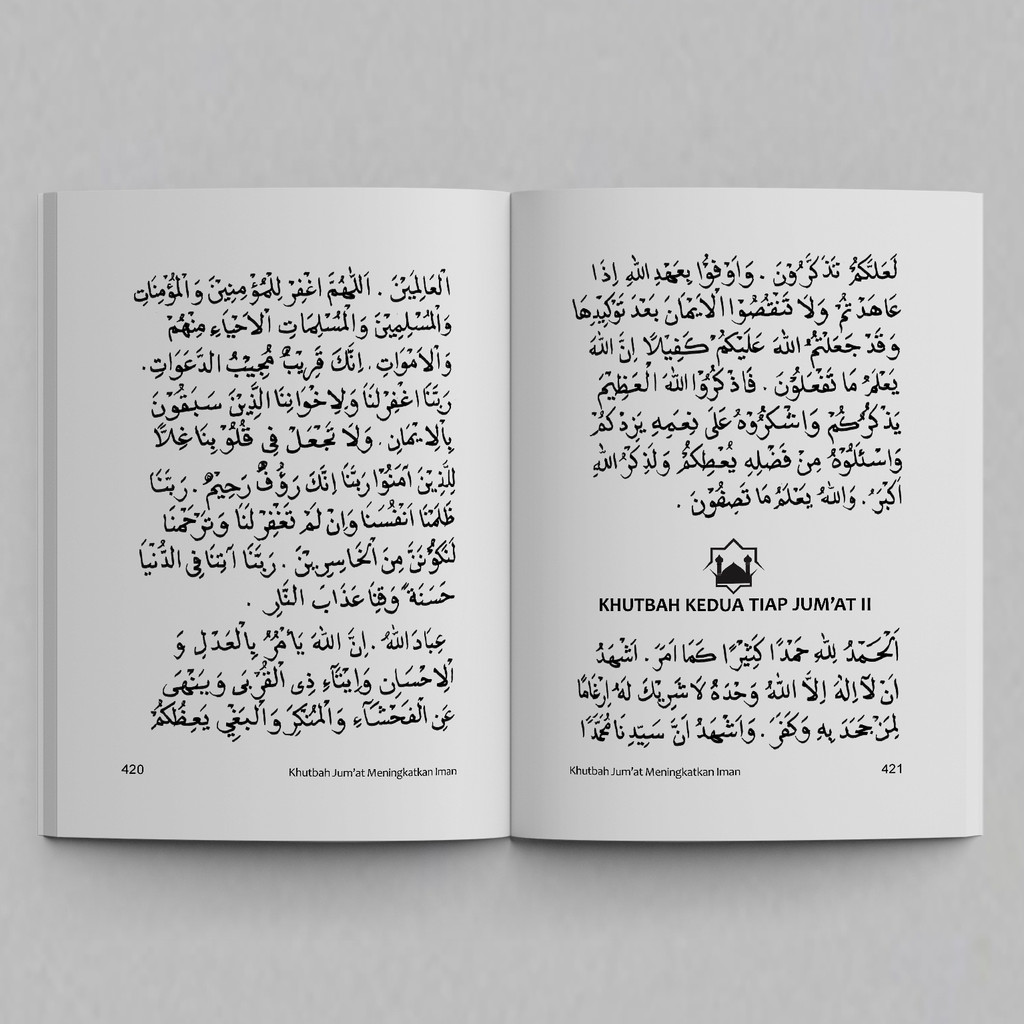 الْعَالَمِيْنَ . اَللّٰهُمَّ اغْفِرْ لِلْمُؤْمِنِيْنَ وَالْمُؤْمِنَاتِ
وَالْمُسْلِمِيْنَ وَالْمُسْلِمَاتِ الْاَحْيَاءِ مِنْهُمْ
وَالْاَمْوَاتِ. اِنَّكَ قَرِيْبٌ مُجِيْبُ الدَّعَوَاتِ.
رَبَّنَا اغْفِرْ لَنَا وَلِاِخْوَانِنَا الَّذِيْنَ سَبَقُوْنَ
بِالْاِيْمَانِ. وَلَا تَجْعَلْ فِي قُلُوْبِنَا غِلًّا
لِلَّذِيْنَ اٰمَنُوْا رَبَّنَا اِنَّكَ رَؤُفٌ رَحِيْمٌ . رَبَّنَا
ظَلَمْنَا اَنْفُسَنَا وَاِنْ لَمْ تَغْفِرْ لَنَا وَتَرْحَمْنَا
لَنَكُوْنَنَّ مِنَ الْخَاسِرِيْنَ . رَبَّنَا اٰتِنَا فِى الدُّنْيَا
حَسَنَةً وَقِنَا عَذَابَ النَّارِ .
عِبَادَ اللّٰهِ . اِنَّ اللّٰهَ يَاْمُرُ بِالْعَدْلِ وَ
الْاِحْسَانِ وَاِيْتَآءِ ذِى الْقُرْبٰى وَيَنْهٰى
عَنِ الْفَحْشَآءِ وَالْمُنْكَرِ وَالْبَغْيِ يَعِظُكُمْ
420
Khutbah Jum'at Meningkatkan Iman
لَعَلَّكُمْ تَذَكَّرُوْنَ . وَاَوْفُوْا بِعَهْدِ اللّٰهِ اِذَا
عَاهَدْتُمْ وَلَا تَنْقُضُوا الْاَيْمَانَ بَعْدَ تَوْكِيْدِهَا
وَقَدْ جَعَلْتُمُ اللّٰهَ عَلَيْكُمْ كَفِيْلًا اِنَّ اللّٰهَ
يَعْلَمُ مَا تَفْعَلُوْنَ . فَاذْكُرُوْا اللّٰهَ الْعَظِيْمَ
يَذْكُرْكُمْ وَاشْكُرُوْهُ عَلَى نِعَمِهِ يَزِدْكُمْ
وَاسْئَلُوْهُ مِنْ فَضْلِهِ يُعْطِكُمْ وَلَذِكْرُ اللّٰهِ
اَكْبَرُ . وَاللّٰهُ يَعْلَمُ مَا تَصِفُوْنَ .
KHUTBAH KEDUA TIAP JUM'AT II
اَلْحَمْدُ لِلّٰهِ حَمْدًا كَثِيْرًا كَمَا اَمَرَ . اَشْهَدُ
اَنْ لَآ اِلٰهَ اِلَّا اللّٰهُ وَحْدَهُ لَا شَرِيْكَ لَهُ اِرْغَامًا
لِمَنْ جَحَدَ بِهِ وَكَفَرَ . وَاَشْهَدُ اَنَّ سَيِّدَنَا مُحَمَّدًا
Khutbah Jum'at Meningkatkan Iman
421